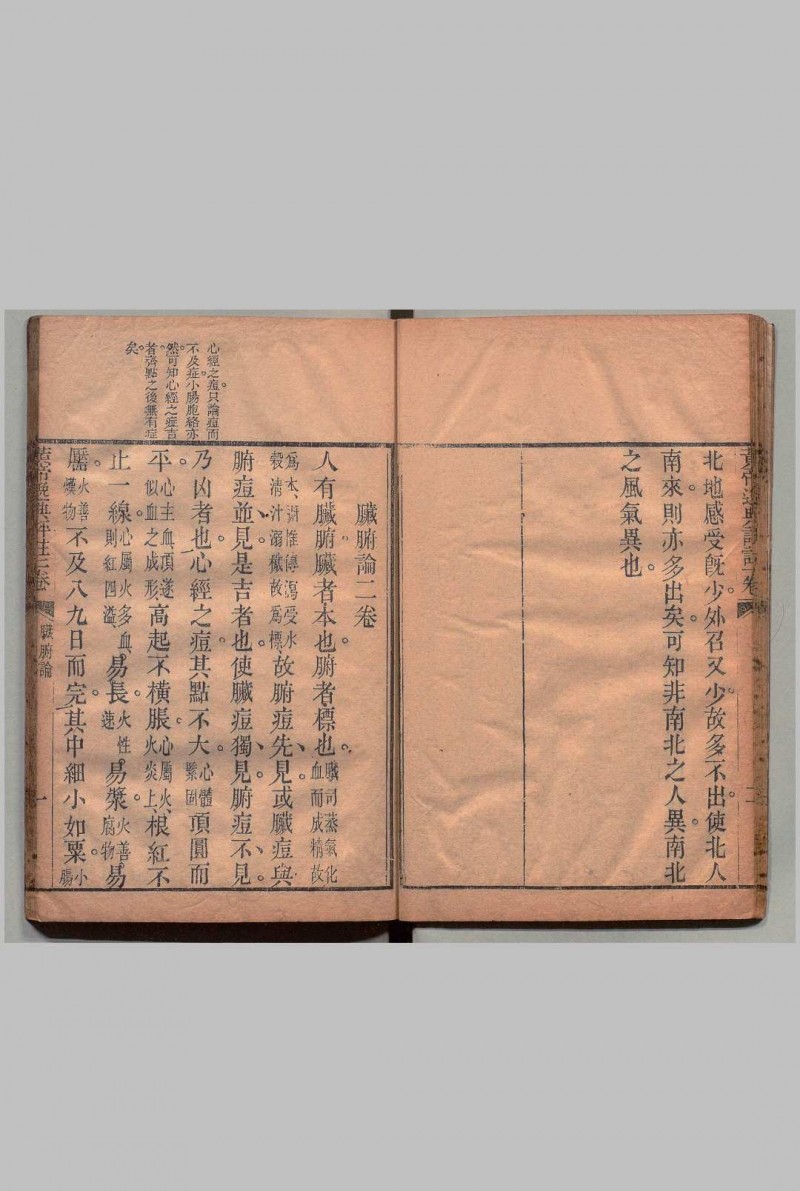 北地感受旣少外召又少故多不出使北人
南來則亦多出矣可知非南北之人異南北
之風氣異也
臟腑論二卷
人有臟腑臟者本也腑者標也臟司蒸氣化血而成精故
爲本腑惟傳瀉受水穀清汁溺穢故爲標故腑痘先見或臟痘與
腑痘並見是吉者也使臟痘獨見腑痘不見
乃凶者也心經之痘其點不大心體繫固頂圓而
平心主血頂遂似血之成形高起不橫脹心屬火火炎上根紅不
止一線心屬火多血則紅四溢易長火性速易漿火善腐物易
靨火善熯物不及八九日而完其中細小如粟小腸
心經之痘只論痘而
不及症小腸胞絡亦
然可知心經之痘吉
者齊點之後無有症
矣
臟腑論
一
二